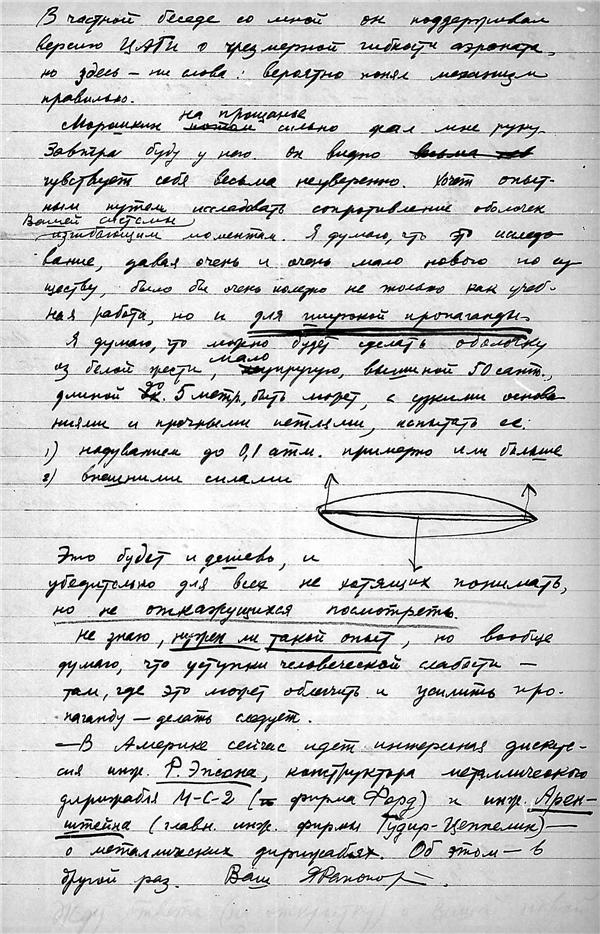 В частной беседе со мной он поддерживал
версию ЦАГИ о чрезмерной гибкости аэроната,
но здесь – ни слова: вероятно понял механизм
правильно.
Морошкин на прощанье сильно жал мне руку.
Завтра буду у него. Он видно
чувствует себя весьма неуверенно. Хочет опыт-
ным путем исследовать сопротивление оболочек
Вашей системы
изгибающим моментам. Я думаю, что это исследо
вание, давая очень и очень мало нового по су
ществу, было бы очень полезно не только как учеб-
ная работа, но и для широкой пропаганды.
Я думаю, что можно будет сделать оболочку
из белой жести, мало упругую, вышиной 50 сант.,
длиной до 5 метр., быть может, с узкими основа
ниями и прочными петлями, испытать ее:
1) надуванием до 0,1 атм. примерно или больше
2) внешними силами
Это будет и дешево, и
убедительно для всех не хотящих понимать,
но не отказущихся посмотреть.
Не знаю, нужен ли такой опыт, но вообще
думаю, что уступки человеческой слабости –
там, где это может облегчить и усилить про-
паганду – делать следует.
– В Америке сейчас идет интересная дискус-
сия инж. Р. Эпсона, конструктора металлического
дирижабля М-С-2 (фирма Форд) и инж. Арен-
штейна (главн. инж. фирмы Гудир-Цеппелин) –
о металлических дирижаблях. Об этом – в
другой раз. Ваш ЯРапопорт